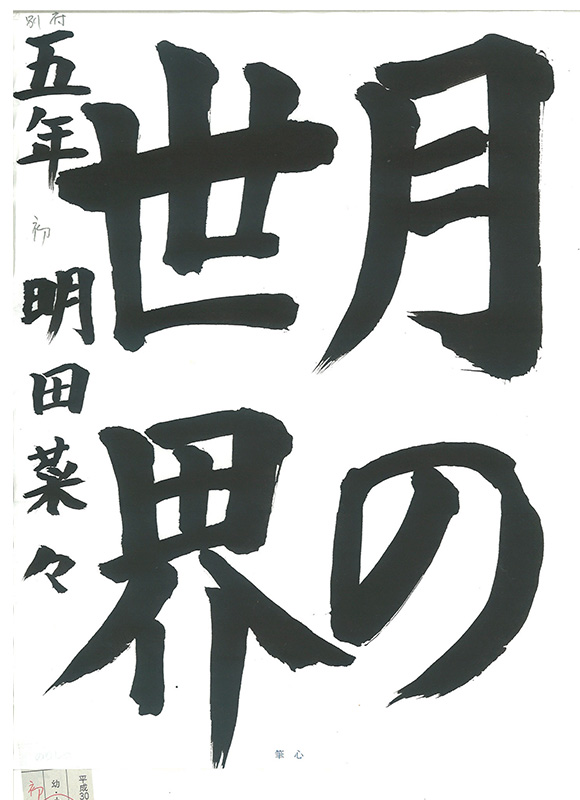 月の
世界
五年 明田菜々
別府
初
筆心
初
幼・
平成30